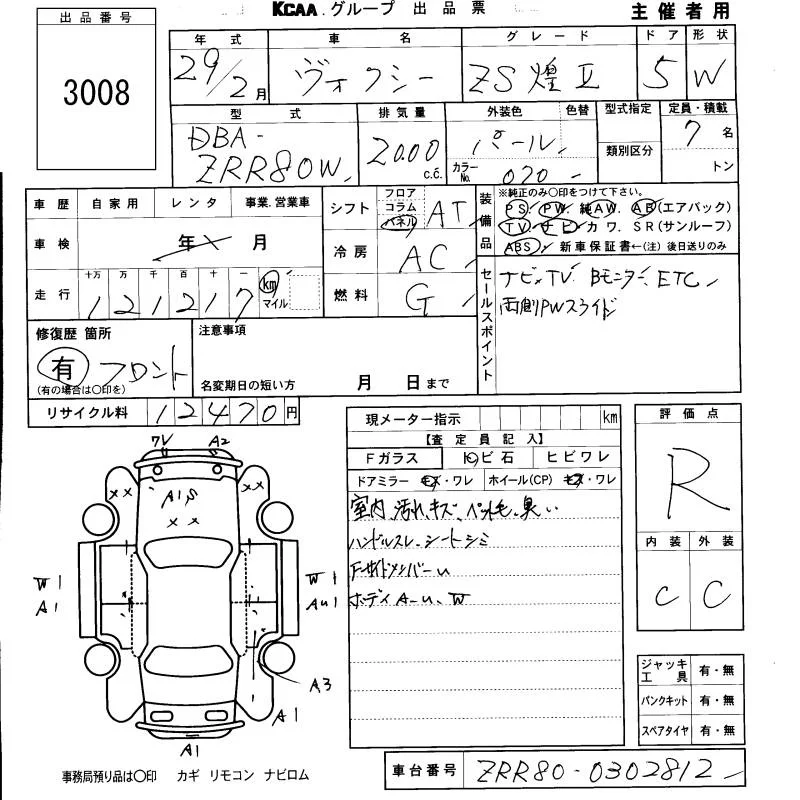 KCAA.グループ 出品票
主催者用
出品番号
3008
年式 車名 グレード ドア 形状
29/2月 ヴォクシー ZS煌Ⅱ 5 W
型式 排気量 外装色 色替 型式指定 定員・積載
DBA-
ZRR80W 2000c.c. パール 類別区分 7名
カラーNo. 070 トン
車歴 自家用 レンタ 事業.営業車
車検 年 月
走行 十万 万 千 百 十 一
121217 km マイル
シフト フロア コラム パネル AT
冷房 AC
燃料 G
装備品 ※純正のみ〇印をつけて下さい。
PS. PW. 純AW. AB(エアバック)
TV ナビ カワ. SR(サンルーフ)
ABS 新車保証書←(注)後日送りのみ
セールスポイント
ナビ、TV Bモニター、ETC
両側PWスライド
修復歴 箇所
有 フロント
(有の場合は〇印を)
注意事項
名変期日の短い方 月 日まで
リサイクル料 12470円
現メーター指示 km
【査定員記入】
Fガラス トビ石 ヒビワレ
ドアミラー キズ・ワレ ホイール(CP) キズ・ワレ
室内、汚れ、キズ、ペット毛、臭い
ハンドルスレ、シートシミ
FサイドメンバーU
ボディA-U、W
評価点
R
内装 外装
C C
ジャッキ工具 有・無
パンクキット 有・無
スペアタイヤ 有・無
A2
A1S
W1
A1
W1
AU1
A3
A1
A1
事務局預り品は〇印 カギ リモコン ナビロム
車台番号 ZRR80-0302812